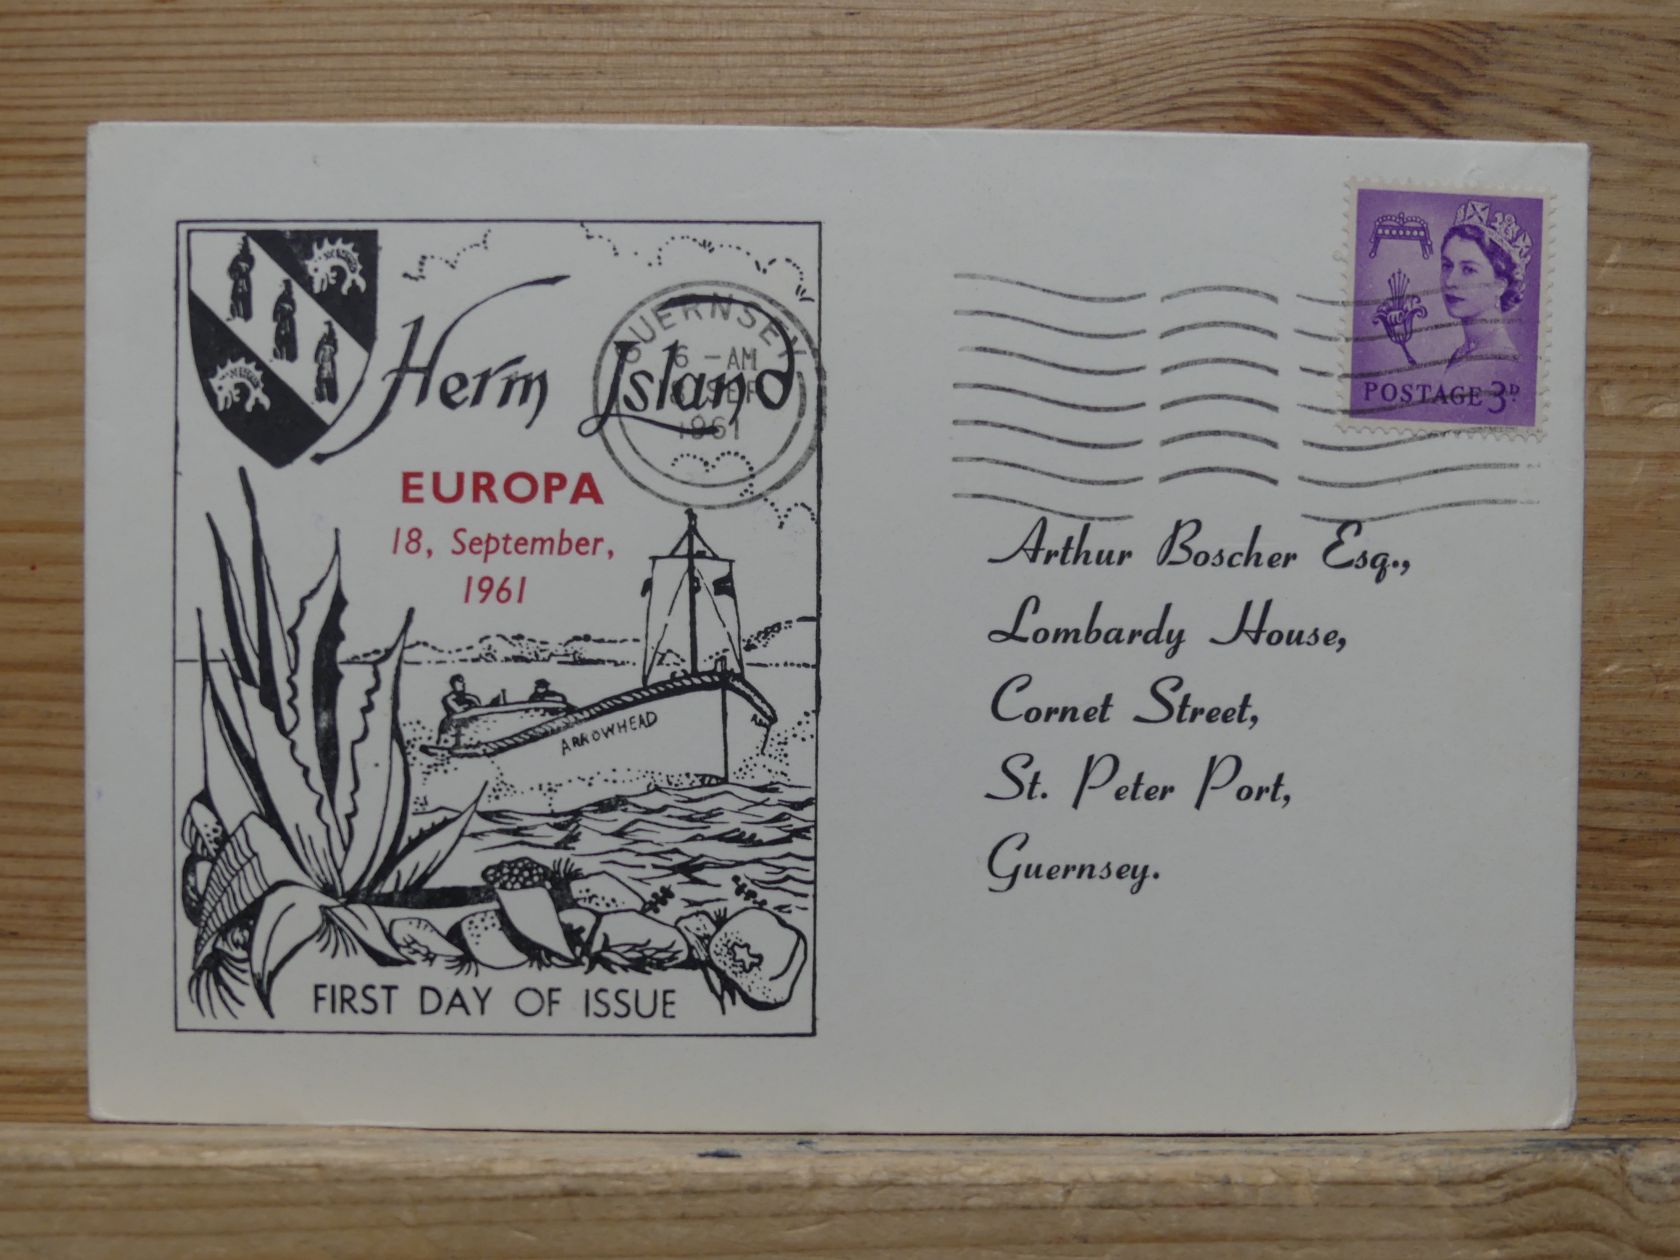 Herm Island
EUROPA
18, September,
1961
GUERNSEY
6 - AM
SEP
1961
ARROWHEAD
FIRST DAY OF ISSUE
POSTAGE 3D.
Arthur Boscher Esq.,
Lombardy House,
Cornet Street,
St. Peter Port,
Guernsey.